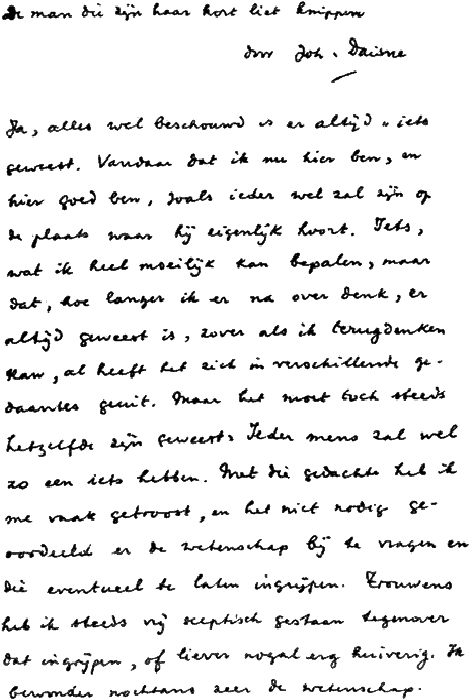 De man die zijn haar kort liet knippen
door Joh. Daisne
Ja, alles wel beschouwd is er altijd "iets
geweest. Vandaar dat ik nu hier ben, en
hier goed ben, zoals ieder wel zal zijn op
de plaats waar hij eigenlijk hoort. Iets,
wat ik heel moeilijk kan bepalen, maar
dat, hoe langer ik er na over denk, er
altijd geweest is, zover als ik terugdenken
kan, al heeft het zich in verschillende ge-
daantes geuit. Maar het moet toch steeds
hetzelfde zijn geweest. Ieder mens zal wel
zo een iets hebben. Met die gedachte heb ik
me vaak getroost, en het niet nodig ge-
oordeeld er de wetenschap bij te vragen en
die eventueel te laten ingrijpen. Trouwens
heb ik steeds vrij sceptisch gestaan tegenover
dat ingrijpen, of liever nogal erg huiverig. Ik
bewonder nochtans zeer de wetenschap.